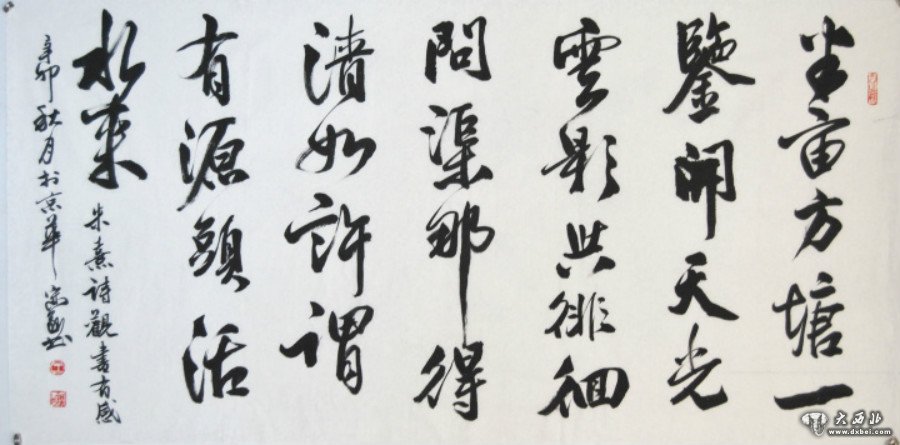 半亩方塘一
鑒開天光
雲影共徘徊
問渠那得
清如許謂
有源頭活
水來
朱熹詩觀書有感
辛卯秋月於京華
大西北
www.dxbei.com